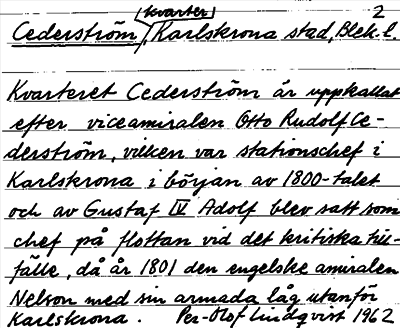 kvarter 2
Cederström, Karlskrona stad, Blek. l.
Kvarteret Cederström är uppkallat
efter viceamiralen Otto Rudolf Ce-
derström, vilken var stationschef i
Karlskrona i början av 1800-talet
och av Gustaf IV Adolf blev satt som
chef på flottan vid det kritiska till-
fälle, då år 1801 den engelske amiralen
Nelson med sin armada låg utanför
Karlskrona. Per-Olof Lindqvist 1962